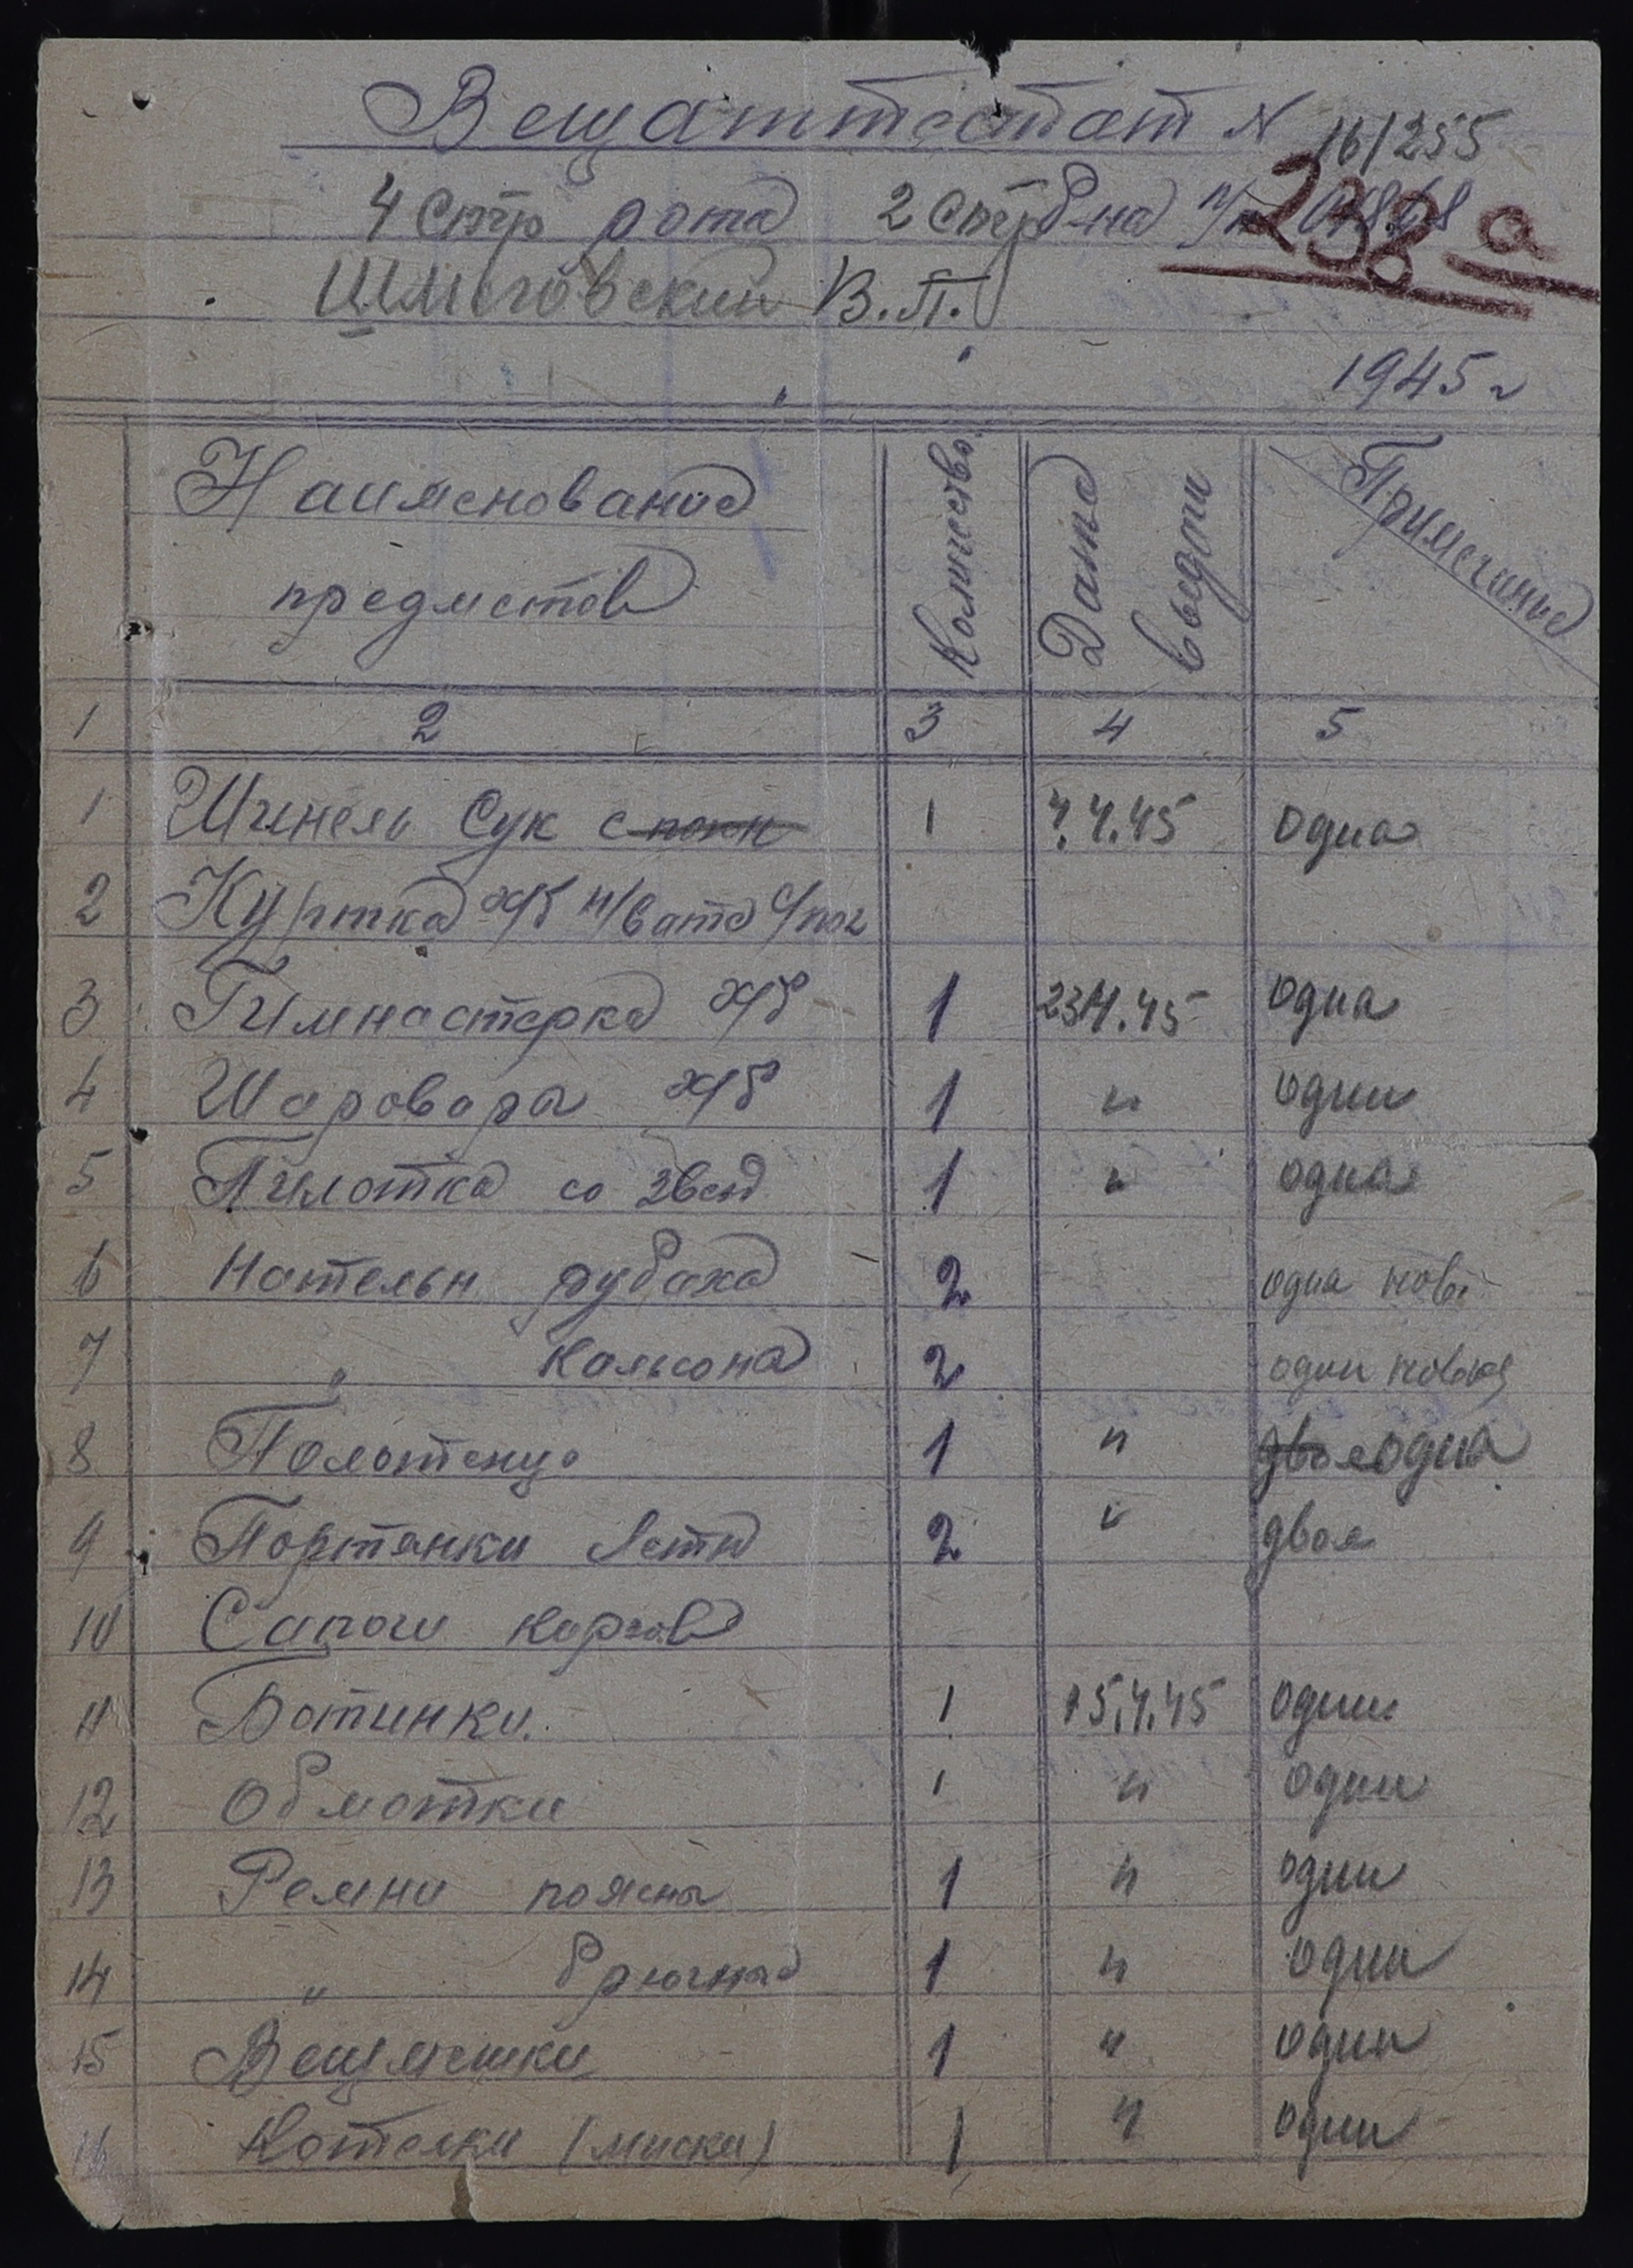 Вещаттестат N 16/255
4 стр рота 2 стр б-на п/п
238 а
Шмиговский В.П.
1945 г
Наименование предметов Количество Дата выдачи Примечание
1 2 3 4 5
1 Шинель Сук с погон 1 7.4.45 одна
2 Куртка х/б н/вате с/пог
3 Гимнастерка х/б 1 23.4.45 одна
4 Шаровары х/б 1 " один
5 Пилотка со звезд 1 " одная
6 Нательн рубаха 2 одна нов
7 " Кальсоны 2 один новая
8 Полотенце 1 " двоя одна
9 Портянки летн 2 " двоя
10 Сапоги кирзов
11 Ботинки. 1 15.4.45 один
12 Обмотки 1 " один
13 Ремни поясны 1 " один
14 " брючные 1 " один
15 Вещмешки 1 " один
16 Котелки (миски) 1 " один